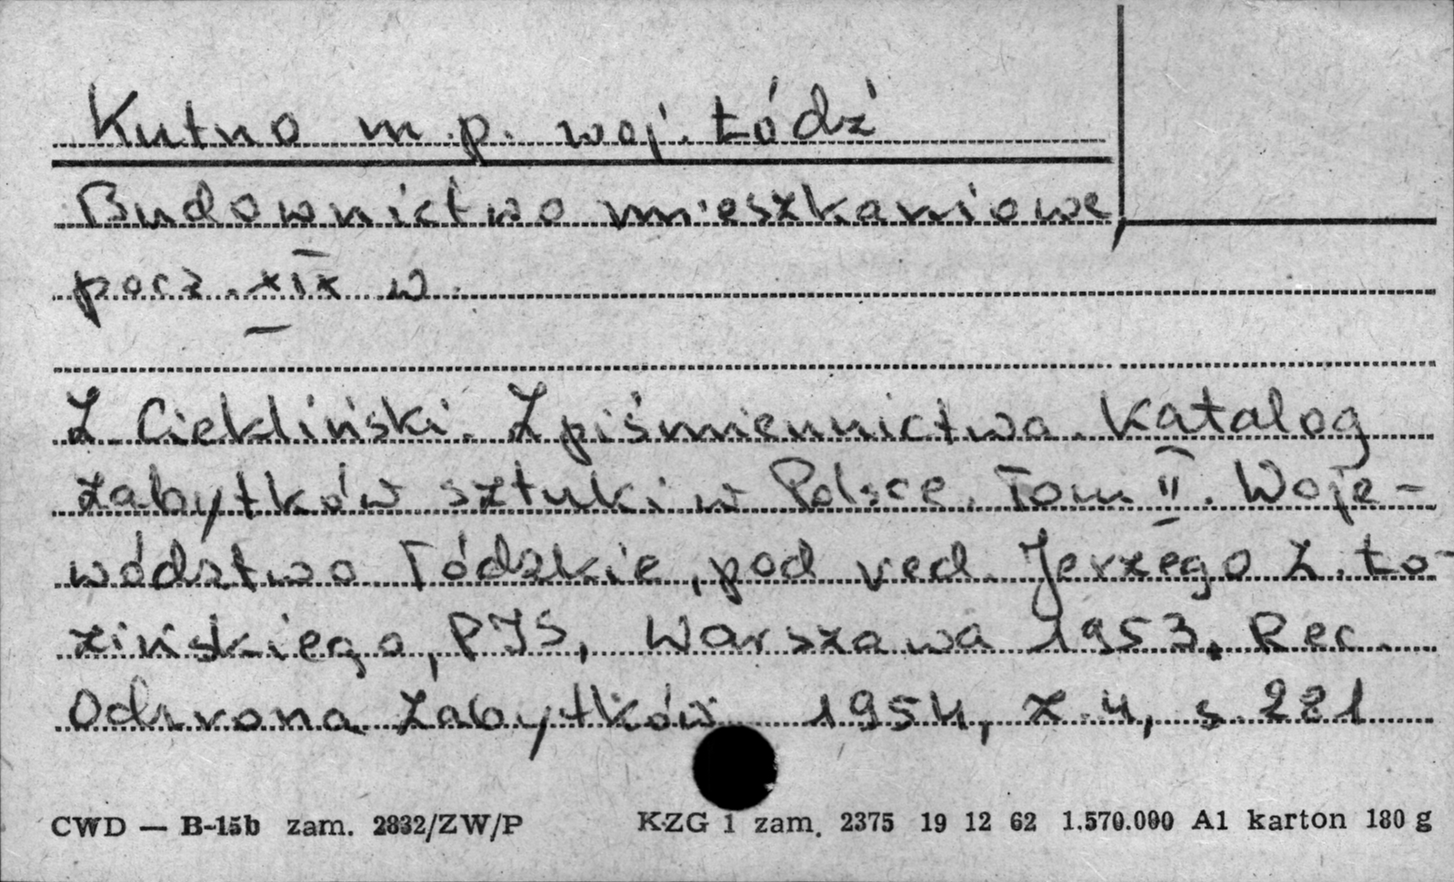 Kutno m.p. woj. Łódź
Budownictwo mieszkaniowe,
pocz. XIX w.
Z. Ciekliński. Z piśmiennictwa. Katalog
zabytków sztuki w Polsce. Tom II. Woje-
wództwo Łódzkie, pod red. Jerzego Z. Ło-
zińskiego, PIS, Warszawa 1953. Rec.
Ochrona Zabytków 1954, z. 4, s. 281
CWD — B-15b zam. 2832/ZW/P K-ZG 1 zam. 2375 19 12 62 1.570.000 A1 karton 180 g